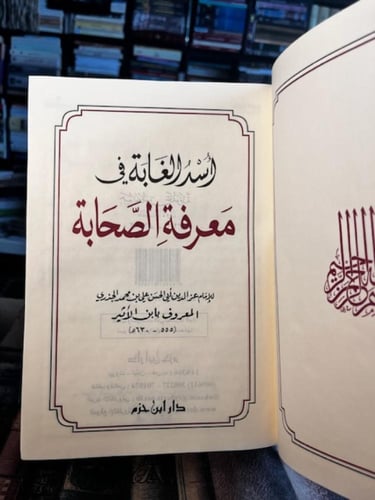 أسد الغابة في
معرفة الصحابة
للإمام عز الدين أبي الحسن علي بن محمد الجزري
المعروف بابن الأثير
(٥٥٥ - ٦٣٠هـ)
دار ابن حزم
دار ابن حزم